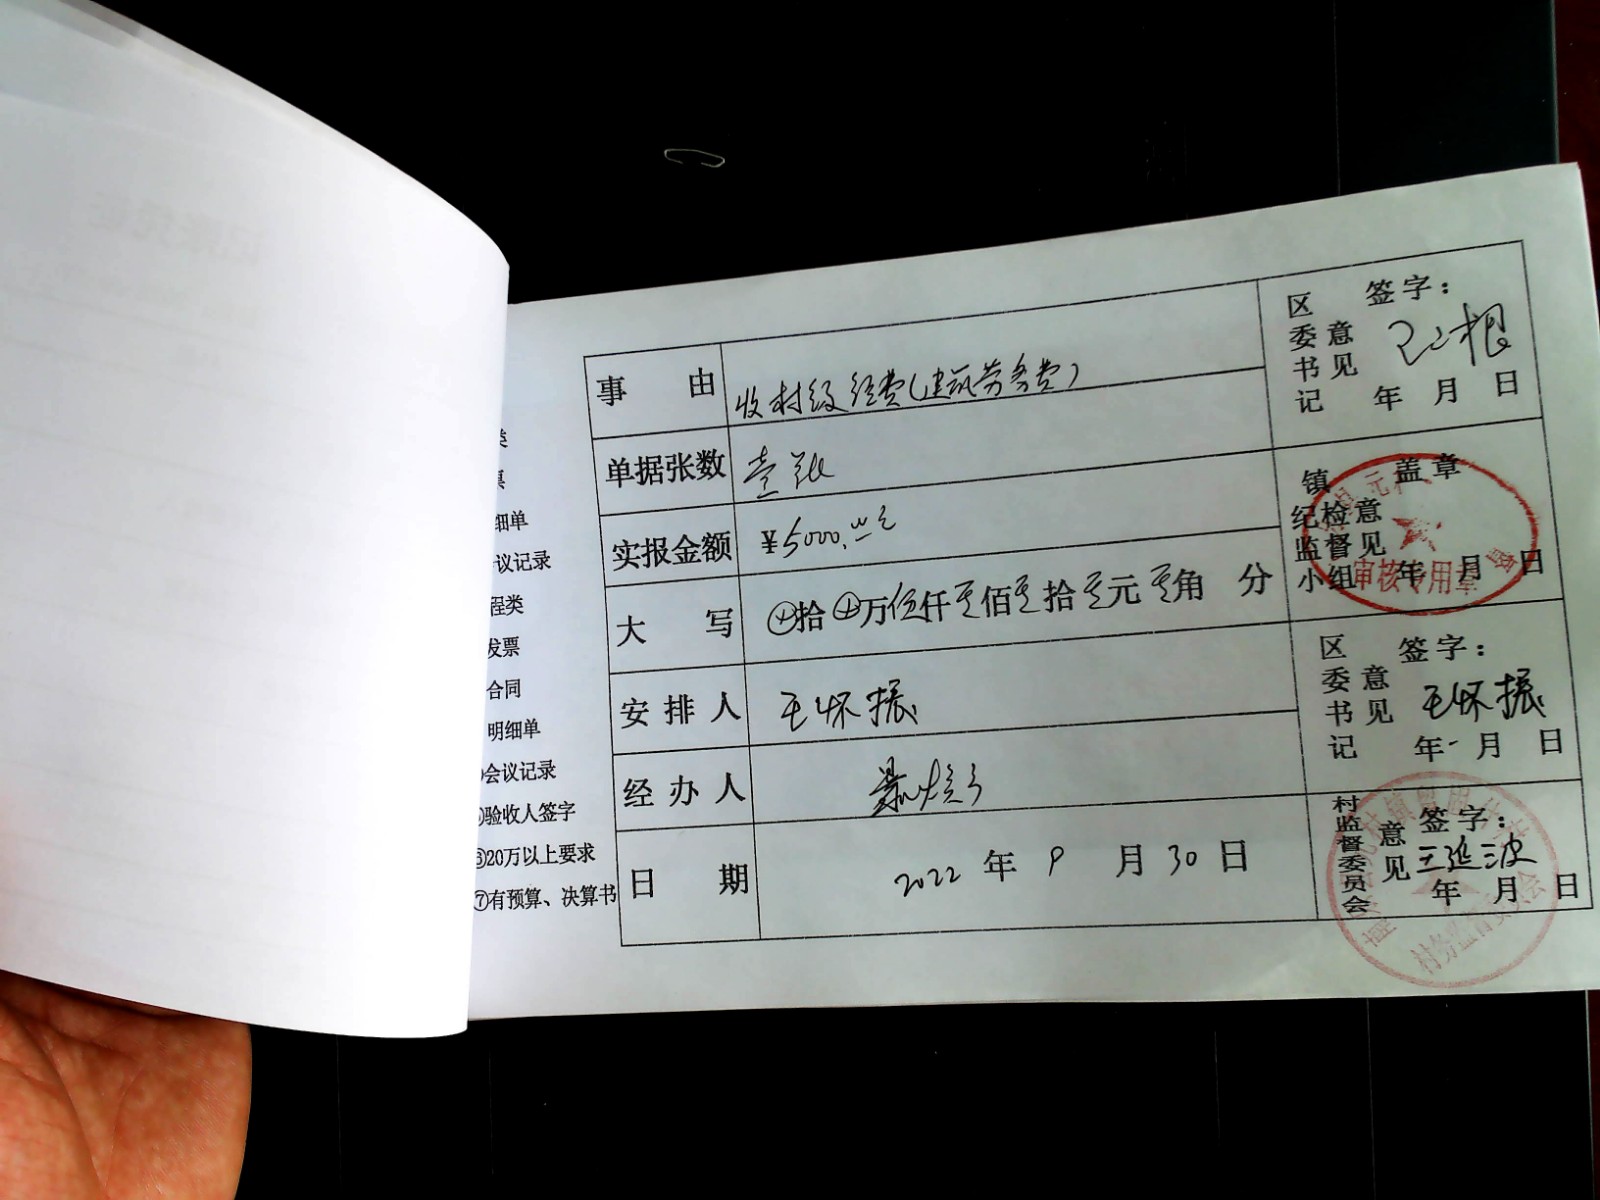 细单
议记录
程类
发票
合同
明细单
会议记录
验收人签字
⑥20万以上要求
⑦有预算、决算书
事由 收村级经费(建筑劳务费)
单据张数 壹张
实报金额 ¥5000.00元
大写 拾 万伍仟零佰零拾零元零角 分
安排人 王怀振
经办人
日期 2022年9月30日
区委书记意见 签字:
年 月 日
镇纪检监督小组意见 盖章
年 月 日
审核专用章
区委书记意见 签字:
王怀振
年 月 日
村监督委员会意见 签字:
王延波
年 月 日
村务监督委员会